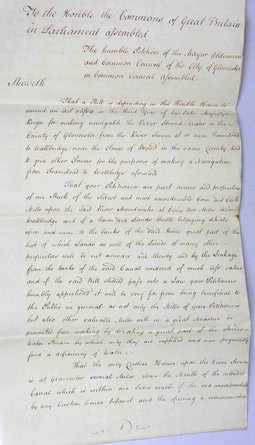 To the Honble the Commons of Great Britain
in Parliament assembled
The humble Petition of the Mayor Aldermen
and Common Council of the City of Gloucester
in Common Council Assembled.
Sheweth
That a Bill is depending in this Honble House to
amend an Act passed in the third Year of his late Majestys
Reign for making navigable the River Stroudwater in the
County of Gloucester from the River Severn at or near Framiload
to Wallbridge near the Town of Stroud in the same County and
to give other Powers for the purposes of making a Navigation
from Framiload to Wallbridge aforesaid
That your Petitioners are part owners and proprietors
of one Stock of the oldest and most considerable Corn and Cloth
Mills upon the said River Stroudwater at two Miles below
Wallbridge and of a Farm and Lands thereto belonging which
upon and near to the banks of the said River great part of the
best of which Lands as well as the Lands of many other
proprietors will be cut asunder and thereby and by the Leakage
from the banks of the said Canal rendered of much less value
and if the said Bill should pass into a Law your Petitioners
humbly apprehend it will be very far from being beneficial to
the Public in general as not only the Mills of your Petitioners
but also other valuable Mills will in a great Measure be
prevented from working by drawing a great part of the
Water Stream by which only they are supplied and now frequently
find a deficiency of Water
That the only Custom House upon the River Severn
is at Gloucester several Miles above the Mouth of the intended
Canal which is within one Tides reach of the sea
by any Custom house Officer and the opening a communication